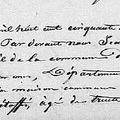 il huit cent cinquante
Par devant nous Jea
il de la commune
Départemen
la maison commun
âgé de trente